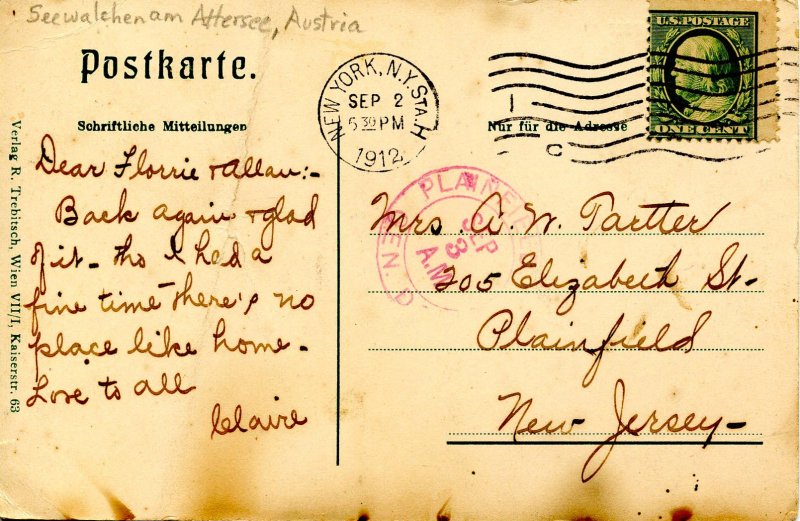 Seewalchen am Attersee, Austria
Postkarte.
Schriftliche Mitteilungen
Nur für die Adresse
NEW YORK, N.Y. STA. H
SEP 2
5 30 PM
1912
U.S. POSTAGE
ONE CENT
PLAINFIELD, NEW
SEP
3
A.M.
Dear Florrie & Allan:-
Back again & glad
of it - tho I had a
fine time there's no
place like home -
Love to all
Claire
Mrs. A. W. Tartter
205 Elizabeth St-
Plainfield
New Jersey-
Verlag R. Trebitsch, Wien VII/1, Kaiserstr. 63